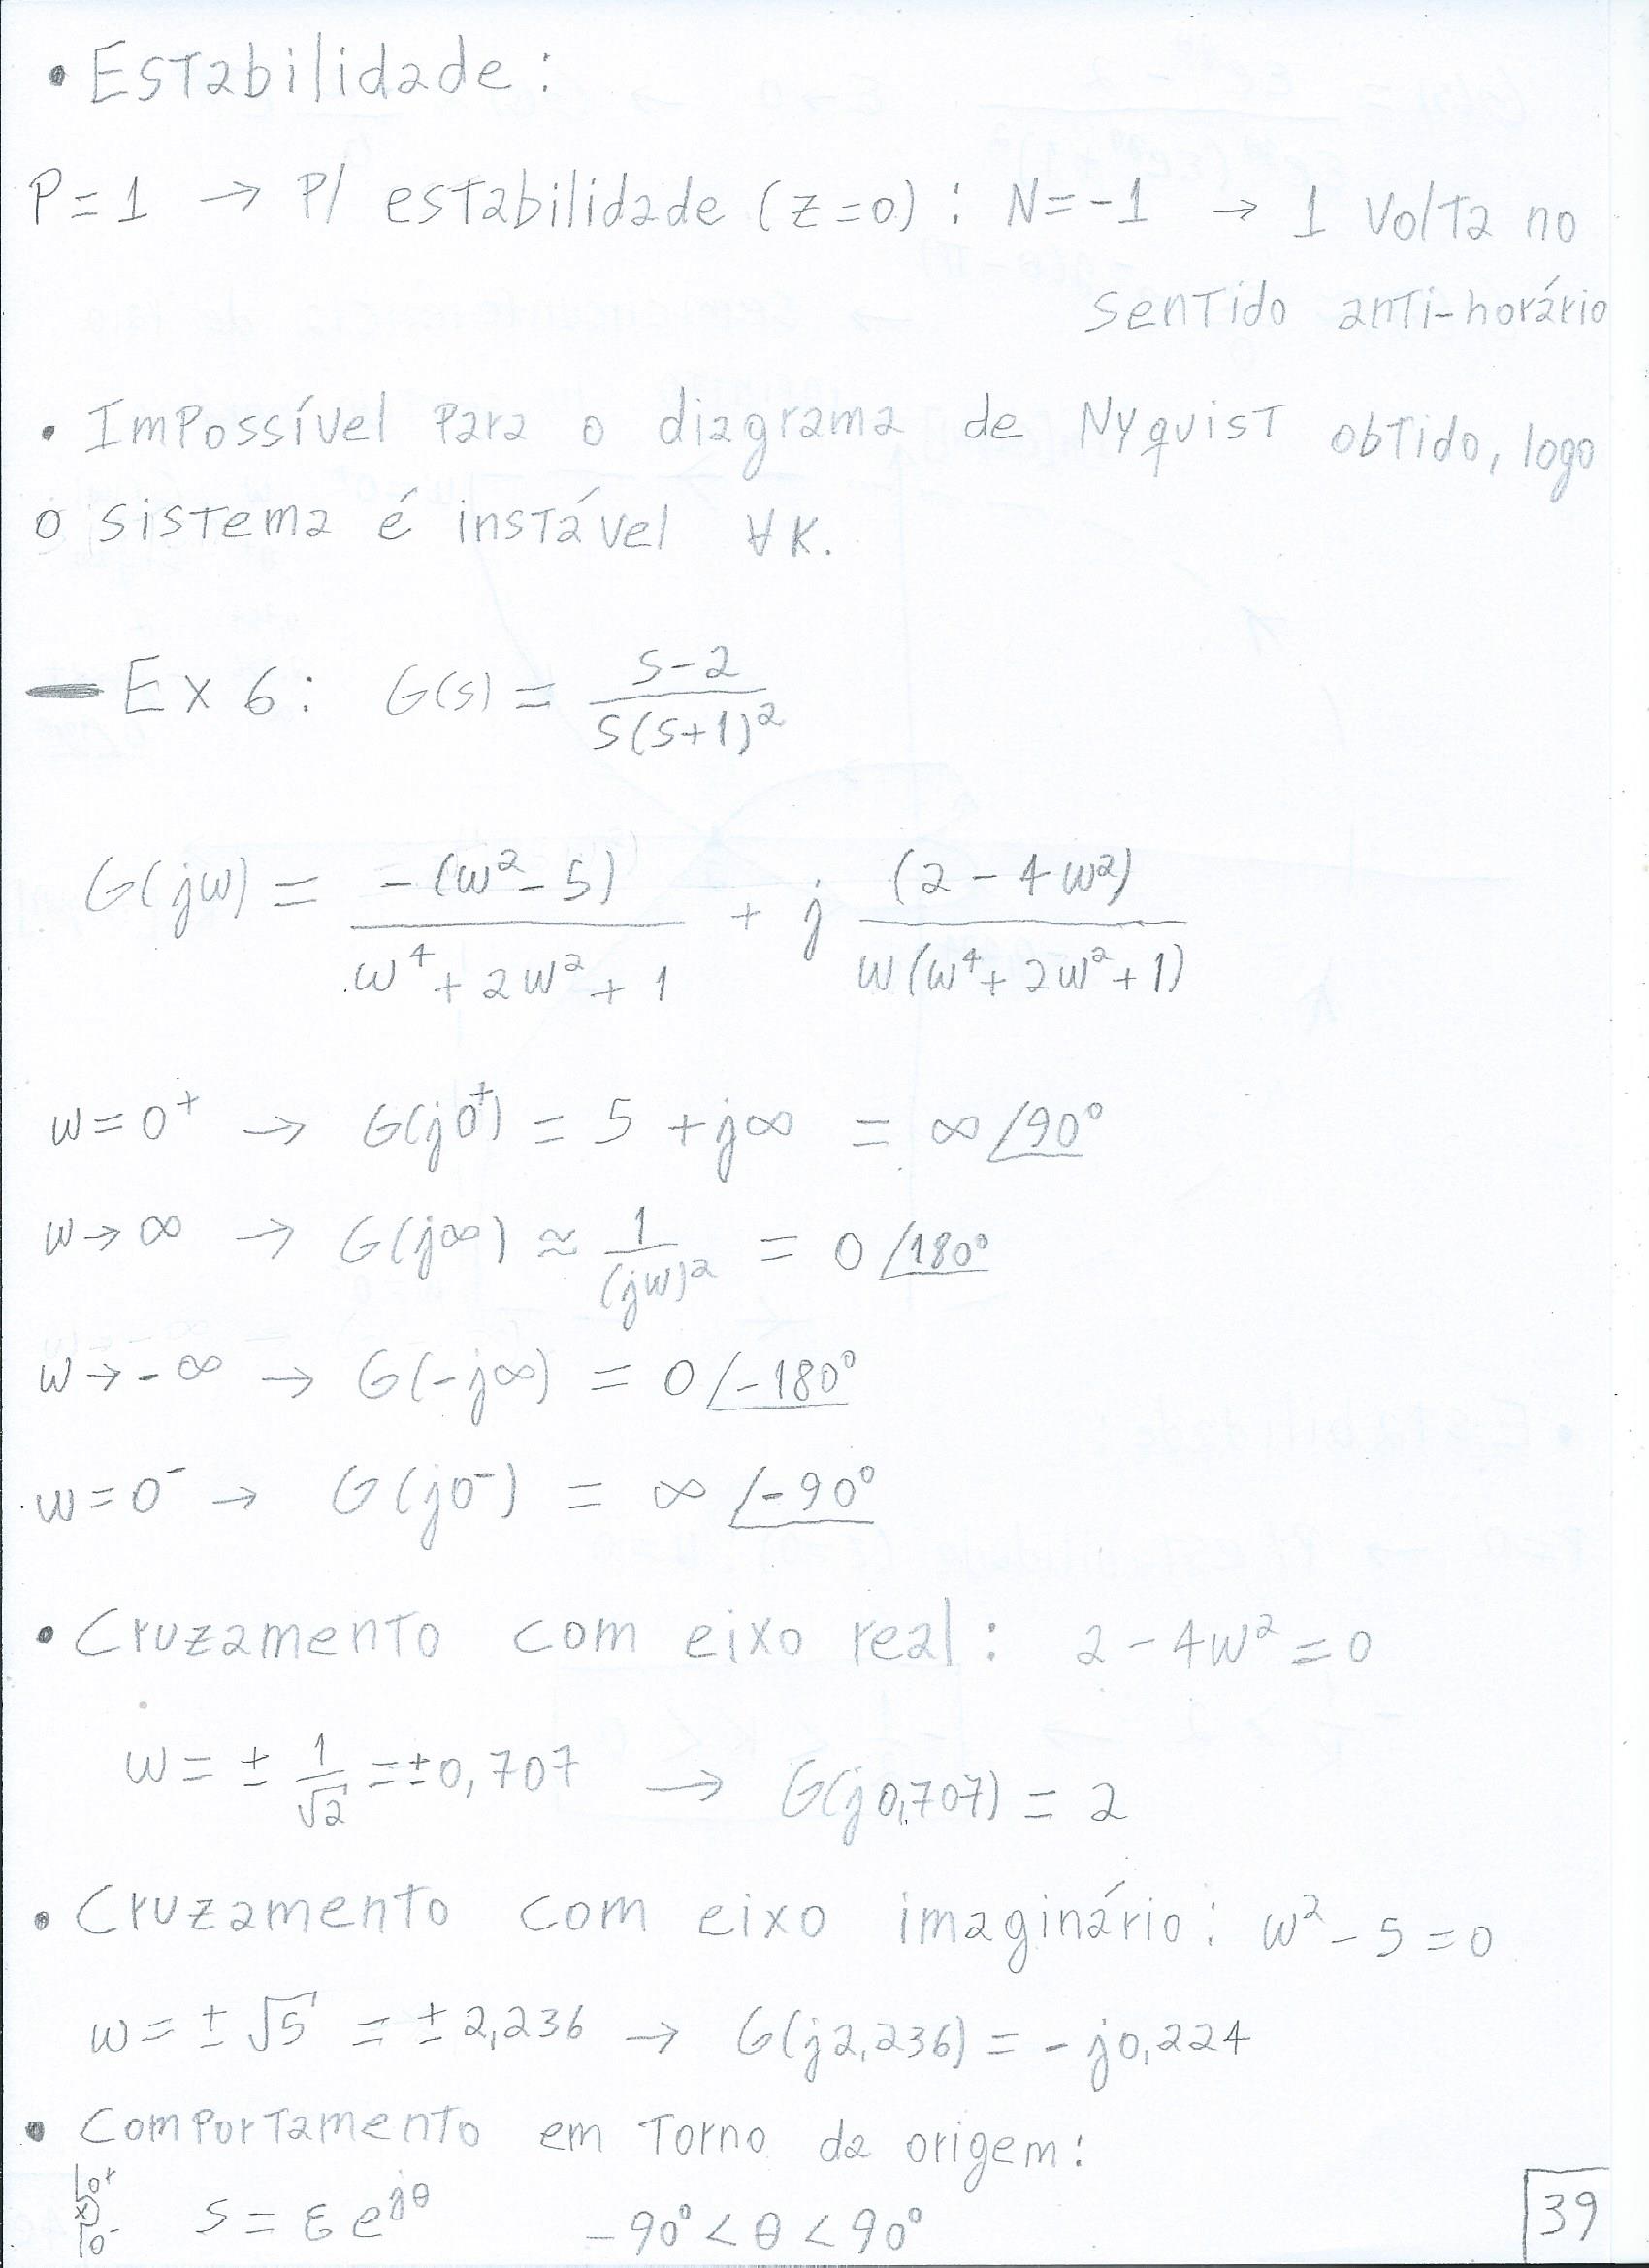 • Estabilidade:
P=1 → P/ estabilidade (z=0): N=-1 → 1 volta no
sentido anti-horário
• Impossível para o diagrama de Nyquist obtido, logo
o sistema é instável ∀K.
— Ex 6: G(s) = (s-2)/(s(s+1)²)
G(jω) = -(ω²-5)/(ω⁴+2ω²+1) + j (2-4ω²)/(ω(ω⁴+2ω²+1))
ω=0⁺ → G(j0⁺) = 5 + j∞ = ∞ ∠90°
ω→∞ → G(j∞) ≈ 1/(jω)² = 0 ∠180°
ω→-∞ → G(-j∞) = 0 ∠-180°
ω=0⁻ → G(j0⁻) = ∞ ∠-90°
• Cruzamento com eixo real: 2-4ω²=0
ω = ± 1/√2 = ±0,707 → G(j0,707) = 2
• Cruzamento com eixo imaginário: ω²-5=0
ω = ± √5 = ±2,236 → G(j2,236) = -j0,224
• Comportamento em torno da origem:
0⁺
0⁻
s = εe^{jθ} -90° < θ < 90°
39